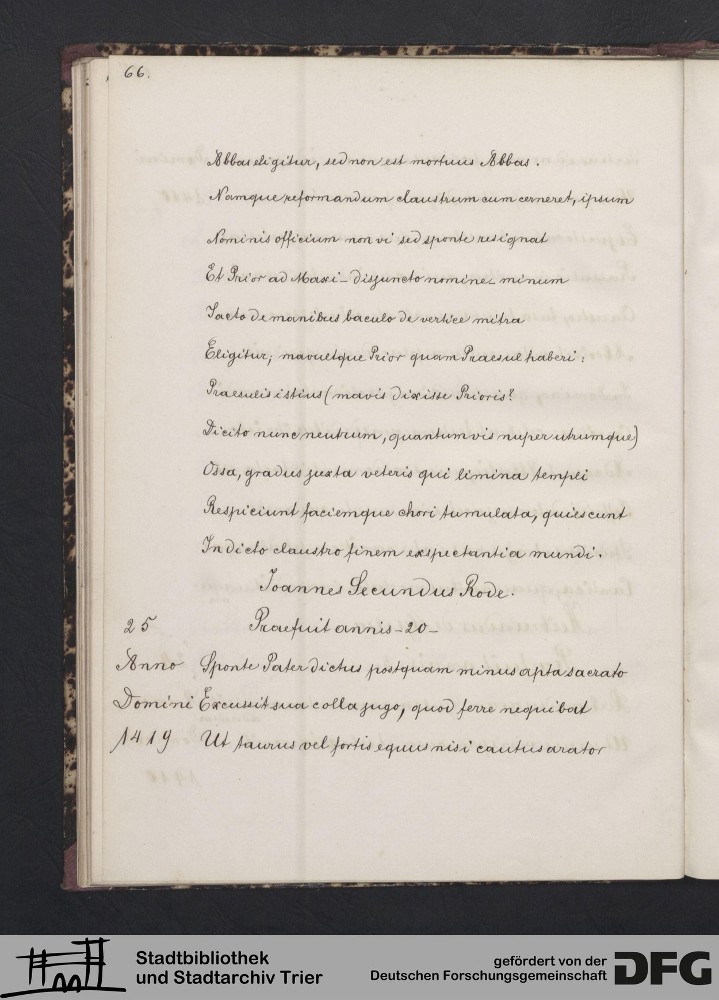 66.
Abbas eligitur, sed non est mortuus Abbas.
Namque reformandum claustrum cum cerneret, ipsum
Nominis officium non vi sed sponte resignat
Et Prior ad Maxi- disjuncto nomine- minum
Jacto de manibus baculo de vertice mitra
Eligitur; mavultque Prior quam Praesul haberi:
Praesulis istius (mavis dixisse Prioris?
Dicito nunc neutrum, quantumvis nuper utrumque)
Ossa, gradus juxta veteris qui limina templi
Respiciunt faciemque chori tumulata, quiescunt
In dicto claustro finem exspectantia mundi.
Joannes Secundus Rode.
25 Praefuit annis-20-
Anno Sponte Pater dictus postquam minus apta sacrato
Domini Excussit sua colla jugo, quod ferre nequibat
1419 Ut taurus vel fortis equus nisi cautus arator
Stadtbibliothek
und Stadtarchiv Trier
gefördert von der
Deutschen Forschungsgemeinschaft
DFG